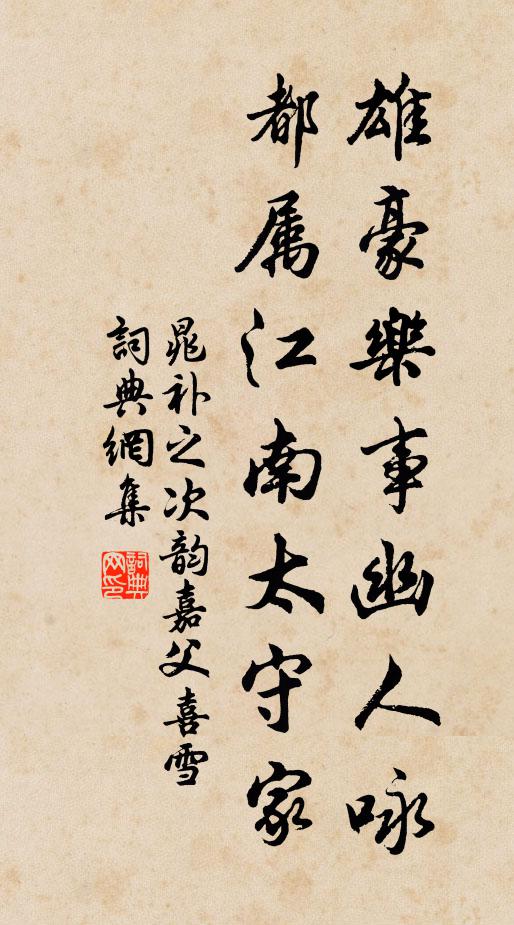 雄豪樂事幽人咏
都属江南太守家
晁补之次韵嘉父喜雪
詞典網集
詞典网印